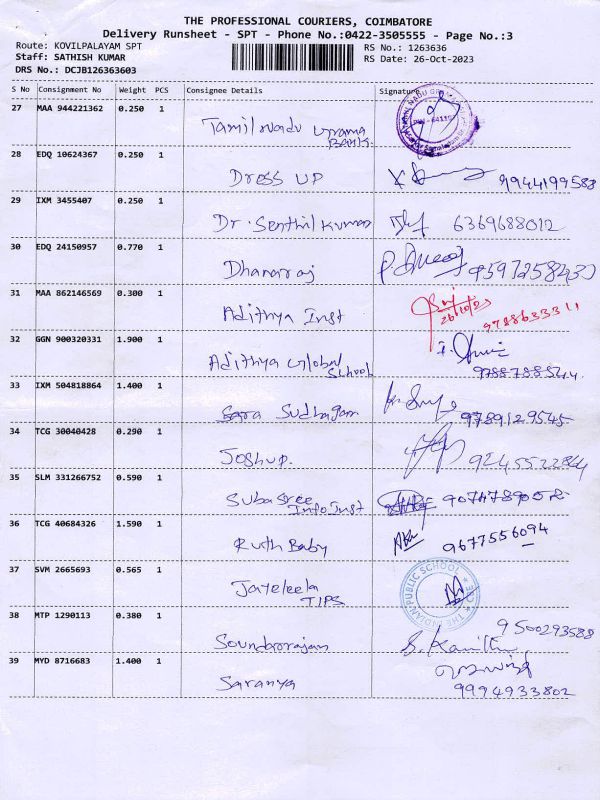 THE PROFESSIONAL COURIERS, COIMBATORE
Delivery Runsheet - SPT - Phone No.:0422-3505555 - Page No.:3
Route: KOVILPALAYAM SPT
RS No.: 1263636
Staff: SATHISH KUMAR
RS Date: 26-Oct-2023
DRS No.: DCJB126363603
S No Consignment No Weight PCS Consignee Details Signature
27 MAA 944221362 0.250 1
Tamil Nadu Grama
Bank.
28 EDQ 10624367 0.250 1
Dress up 9944199588
29 IXM 3455407 0.250 1
Dr. Senthil kumar 6369688012
30 EDQ 24150957 0.770 1
Dhanaraj 9597258430
31 MAA 862146569 0.300 1
Adithya Inst 26/10/23
9788633311
32 GGN 900320331 1.900 1
Adithya Global
School
33 IXM 504818864 1.400 1
Sara Sudhagam 9789129545
34 TCG 30040428 0.290 1
Joshup. 9245522864
35 SLM 331266752 0.590 1
Subasree
InfoInst
36 TCG 40684326 1.590 1
Ruth Baby 9677556094
37 SVM 2665693 0.565 1
Jayeleela
TIPS
THE INDIAN PUBLIC SCHOOL
38 MTP 1290113 0.380 1
9500293588
Soundrorajan
39 MYD 8716683 1.400 1
Saranya
9994933802